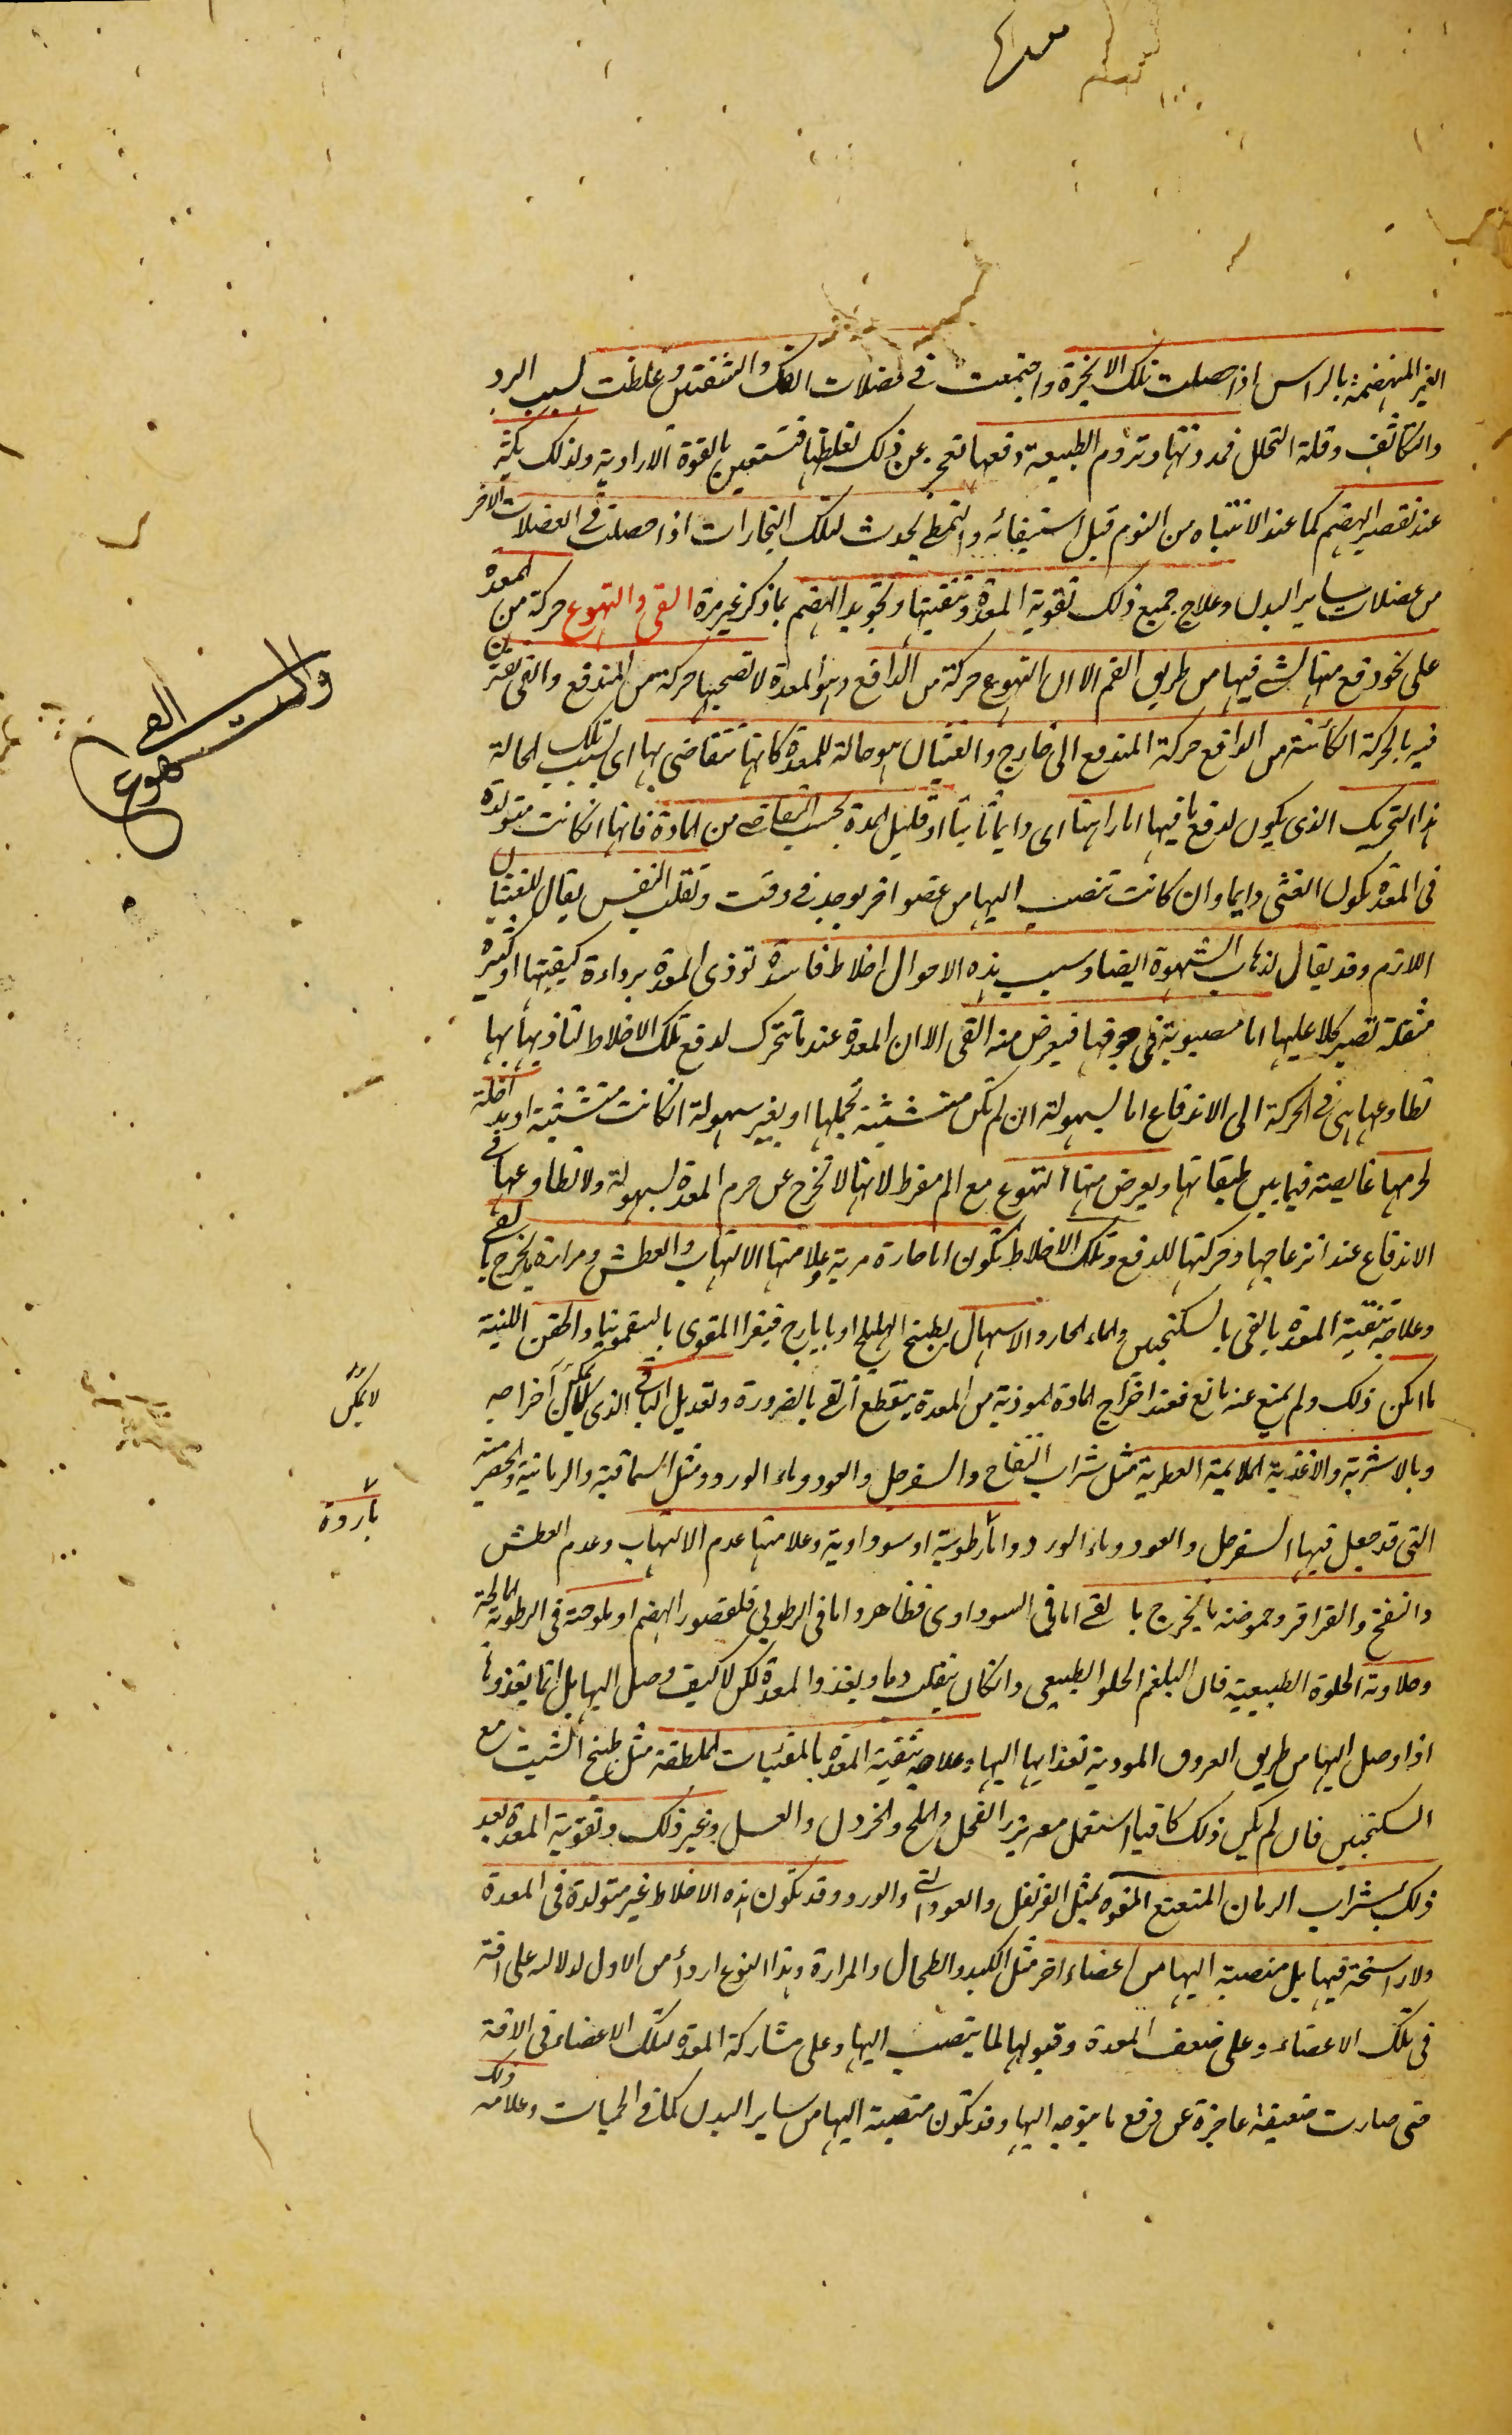 الغير المنهضمة بالراس اذا حصلت تلك الابخرة واجتمعت فى عضلات الفك والشفتين وغلظت لسبب البرد
والتكاثف وقلة التحلل فمددتها وتروم الطبيعة دفعها فتعجز عن ذلك لغلظها فتستعين بالقوة الارادية ولذلك يكثر
عند تقصير الهضم كما عند الانتباه من النوم قبل استيفائه والتمطى يحدث لتلك البخارات اذا حصلت فى العضلات الاخر
من عضلات ساير البدن وعلاج جميع ذلك تقوية المعدة وتنقيتها وتجويد الهضم بما ذكر غير مرة القى والتهوع حركة من المعدة
على نحو دفع منها لشى فيها من طريق الفم الا ان التهوع حركة من الدافع وهو المعدة لا تصحبها حركة من المندفع والقى يقترن
فيه بالحركة الكائنة من الدافع حركة المندفع الى خارج والغثيان هو حالة للمعدة كانها تتقاضى بها اى بسبب تلك الحالة
هذا التحريك الذى يكون لدفع ما فيها اما راهنا اى دايما ثابتا او قليل المدة بحسب التقاضى من المادة فانها ان كانت متولدة
فى المعدة يكون الغثى دايما وان كانت تنصب اليها من عضو اخر يوجد فى وقت وتقلب النفس يقال للغثيان
اللازم وقد يقال لذهاب الشهوة ايضا وسبب هذه الاحوال اخلاط فاسدة توذى المعدة برداءة كيفيتها او كثيرة
مثقلة تصير كلا عليها اما مصبوبة فى جوفها فيعرض منه القى الا ان المعدة عند ما تتحرك لدفع تلك الاخلاط لتاذيها بها
تطاوعها هى فى الحركة الى الاندفاع اما بسهولة ان لم تكن متشبثة بخملها او بغير سهولة ان كانت متشبثة او مداخلة
لجرمها غايصة فيما بين طبقاتها ويعرض منها التهوع مع الم مفرط لانها لا تخرج عن جرم المعدة بسهولة ولا تطاوعها فى
الاندفاع عند انزعاجها وحركتها للدفع وتلك الاخلاط تكون اما حارة مرية وعلامتها الالتهاب والعطش ومرارة ما يخرج بالقى
وعلاجه تنقية المعدة بالقى بالسكنجبين والماء الحار والاسهال بطبيخ الهليلج او بايارج فيقرا المقوى بالسقمونيا والحقن اللينة
ما امكن ذلك ولم يمنع عنه مانع فعند اخراج المادة الموذية من المعدة ينقطع القى بالضرورة وتعديل الباقى الذى لا يمكن اخراجه
وبالاشربة والاغذية الملايمة العطرية مثل شراب التفاح والسفرجل والعود وماء الورد ومثل السماقية والرمانية والحصرمية
التى قد جعل فيها السفرجل والعود وماء الورد واما رطوبية او سوداوية وعلامتها عدم الالتهاب وعدم العطش
والنفخ والقراقر وحموضة ما يخرج بالقى اما فى السوداوى فظاهر واما فى الرطوبى فلقصور الهضم او ملوحته فى الرطوبة المالحة
وحلاوته الحلوة الطبيعية فان البلغم الحلو الطبيعى وان كان ينقلب دما ويغذو المعدة لكن لا كيف وصل اليها بل انما يغذوها
اذا وصل اليها من طريق العروق المودية لغذايها اليها وعلاجه تنقية المعدة بالمقيئات الملطفة مثل طبيخ الشبت مع
السكنجبين فان لم يكن ذلك كافيا استعمل معه بزر الفجل والملح والخردل والعسل وغير ذلك وتقوية المعدة بعد
ذلك بشراب الرمان المنعنع المقوه بمثل القرنفل والعود والورد وقد تكون هذه الاخلاط غير متولدة فى المعدة
ولا راسخة فيها بل منصبة اليها من اعضاء اخر مثل الكبد والطحال والمرارة وهذا النوع اردأ من الاول لدلالته على افة
فى تلك الاعضاء وعلى ضعف المعدة وقبولها لما ينصب اليها وعلى مشاركة المعدة لتلك الاعضاء فى الافة
حتى صارت ضعيفة عاجزة عن دفع ما يتوجه اليها وقد تكون منصبة اليها من ساير البدن كما فى الحميات وعلامة ذلك
لا يمكن
باردة